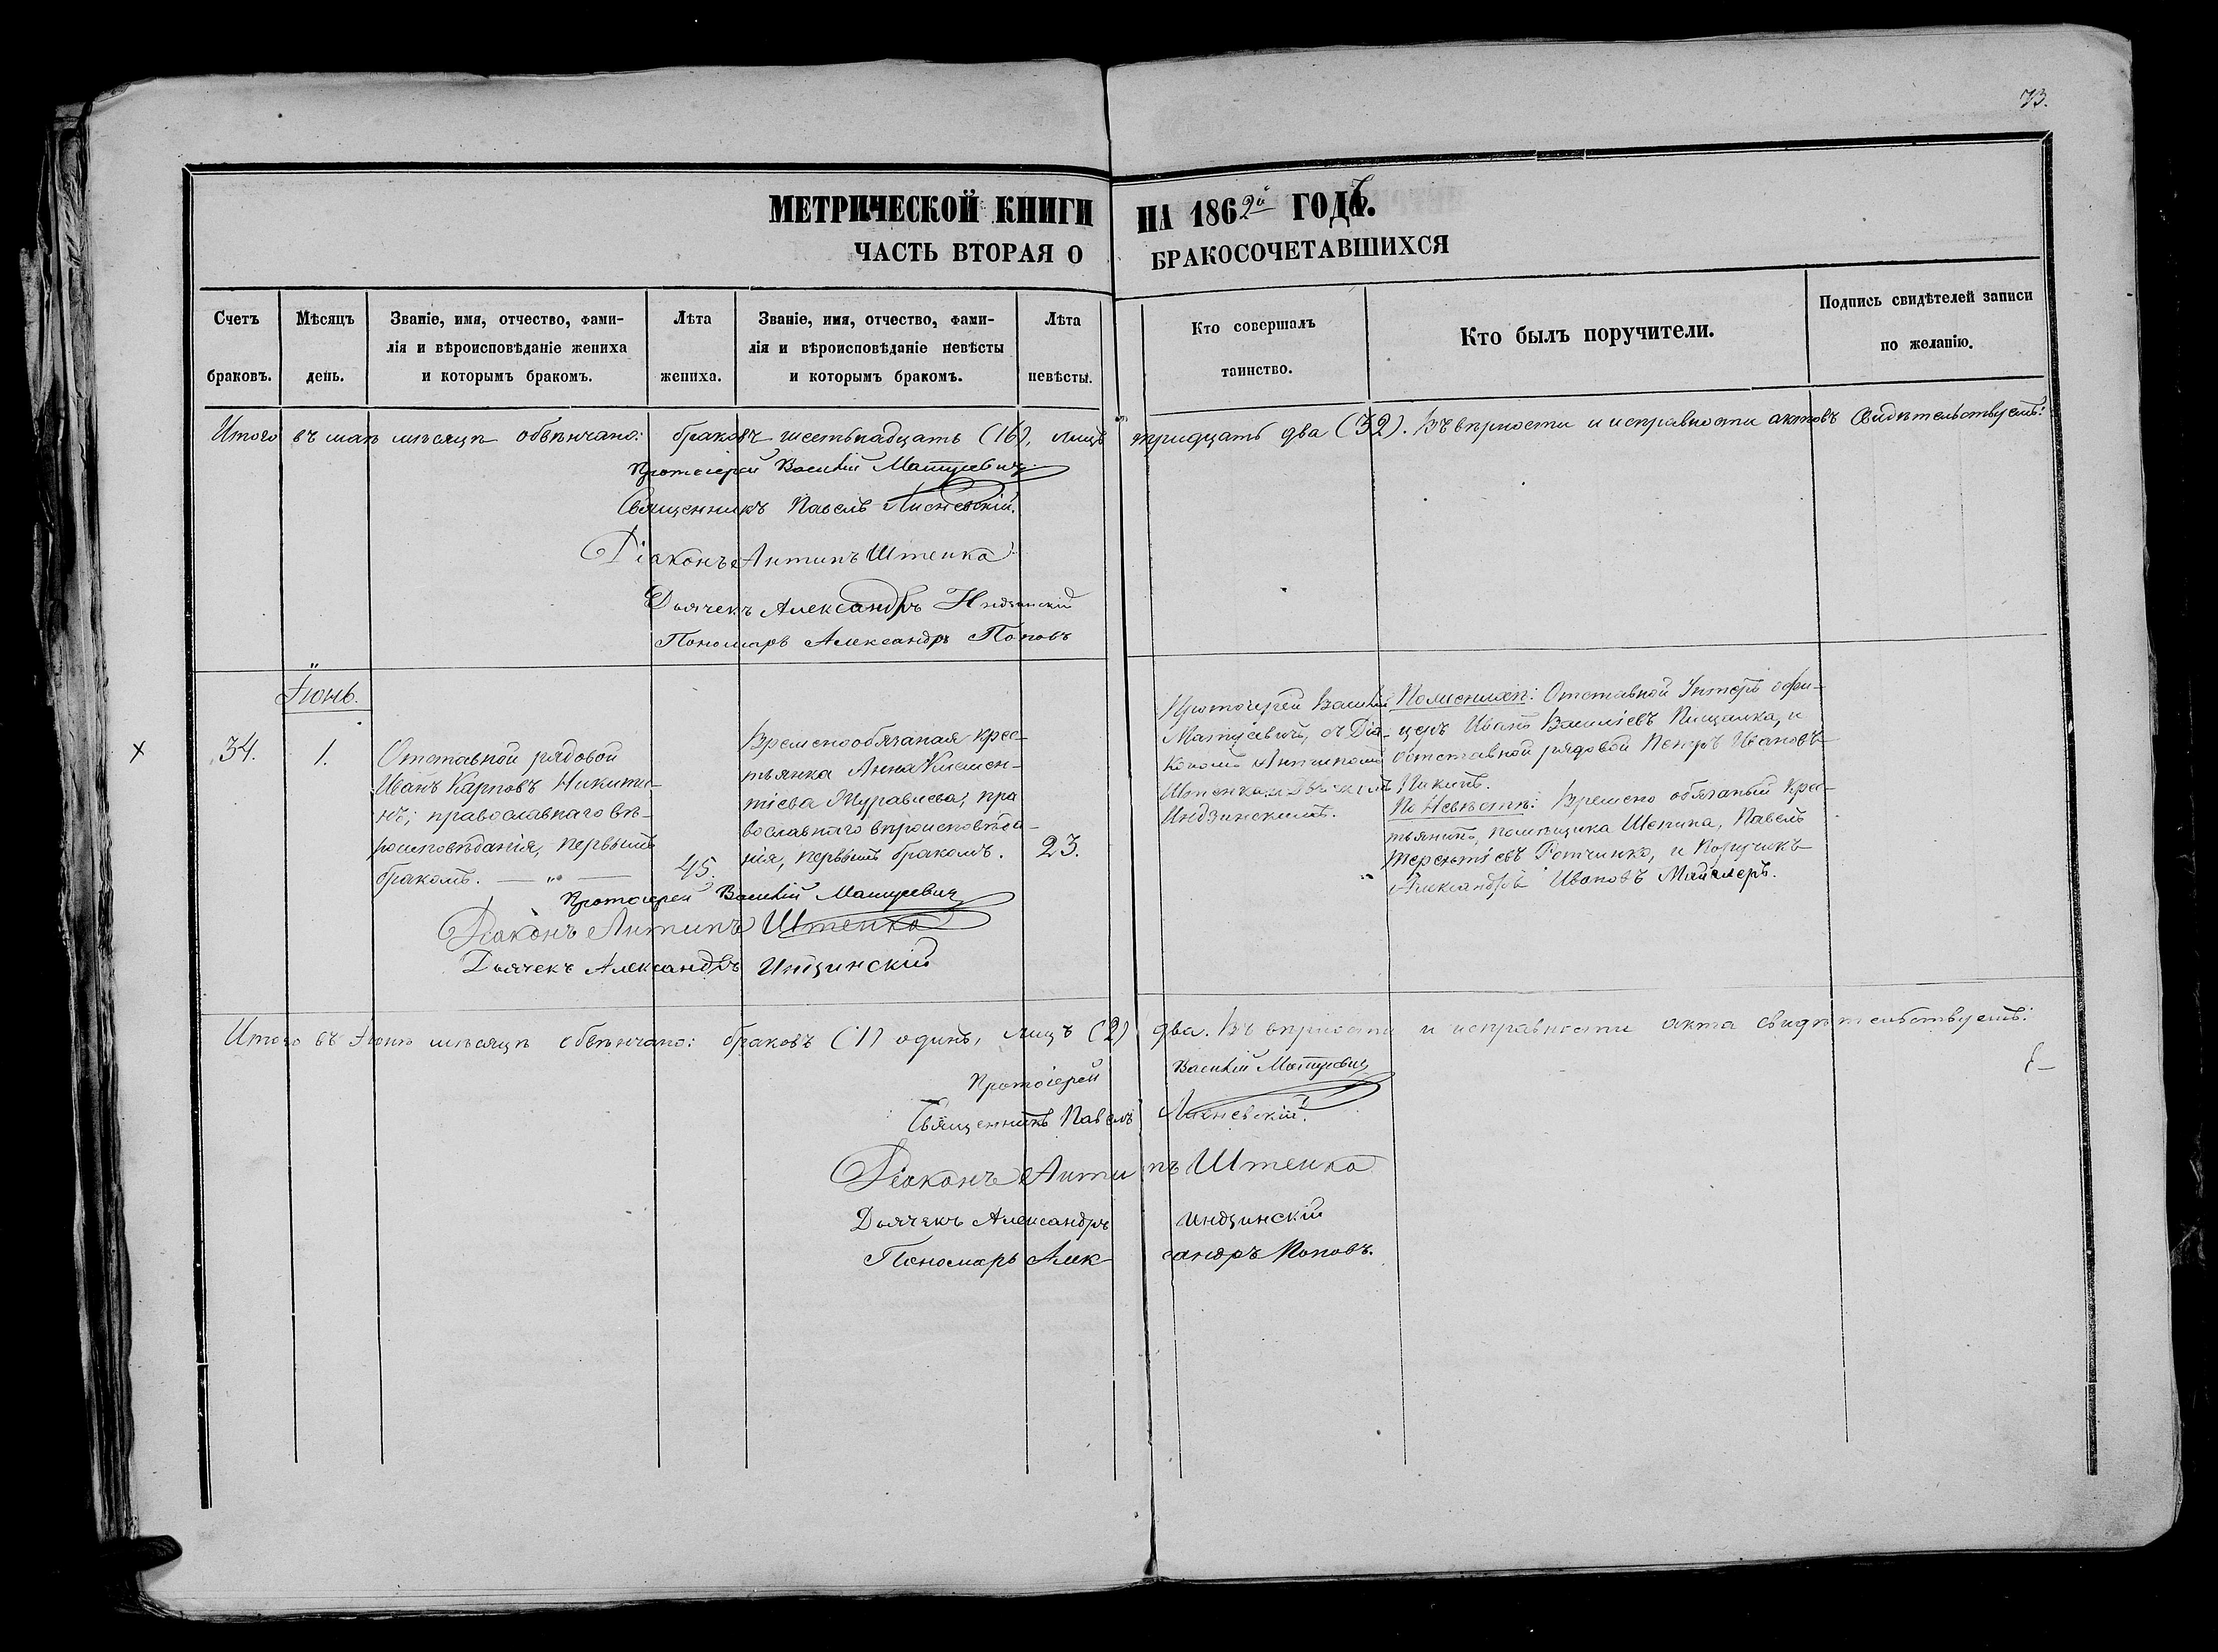 73.
МЕТРИЧЕСКОЙ КНИГИ НА 1862й ГОДЪ.
ЧАСТЬ ВТОРАЯ О БРАКОСОЧЕТАВШИХСЯ
Счетъ браковъ.
Мѣсяцъ день.
Званіе, имя, отчество, фами-
лія и вѣроисповѣданіе жениха
и которымъ бракомъ.
Лѣта жениха.
Званіе, имя, отчество, фами-
лія и вѣроисповѣданіе невѣсты
и которымъ бракомъ.
Лѣта невѣсты.
Кто совершалъ
таинство.
Кто былъ поручители.
Подпись свидѣтелей записи
по желанію.
Итого въ маѣ мѣсяцѣ обвѣнчано: браковъ шестьнадцать (16), лицъ тридцать два (32). Въ вѣрности и исправности актовъ свидѣтельствуемъ:
Протоіерей Василій Матусевичъ
Священникъ Павелъ Лисневскій.
Діаконъ Антипъ Штепка
Дьячекъ Александръ Индзинскій
Пономарь Александръ Поповъ
Іюнь.
34.
1.
Отставной рядовой
Иванъ Карповъ Никити-
нъ; православнаго вѣ-
роисповѣданія, первымъ
бракомъ.
45.
Временнообязаная крес-
тьянка Анна Климен-
тіева Журавлева; пра
вославнаго вѣроисповѣда-
нія, первымъ бракомъ.
23.
Протоіерей Василій
Матусевичъ, съ Діа-
кономъ Антипомъ
Штепкою и Дьячкомъ
Индзинскимъ.
По женихѣ: Отставной Унтеръ офи-
церъ Иванъ Василіевъ Пищалка, и
отставной рядовой Петръ Ивановъ
Никитъ.
По Невѣстѣ: Временно обязаный Крес-
тьянинъ, помѣщика Шепина, Павелъ
Терентіевъ, и Поручикъ
Александръ Ивановъ Майлеръ.
Протоіерей Василій Матусевичъ
Діаконъ Антипъ Штепка
Дьячекъ Александръ Индзинскій
Итого въ Іюнѣ мѣсяцѣ обвѣнчано: браковъ (1) одинъ, лицъ (2) два. Въ вѣрности и исправности акта свидѣтельствуемъ:
Протоіерей Василій Матусевичъ
Священникъ Павелъ Лисневскій.
Діаконъ Антипъ Штепка
Дьячекъ Александръ Индзинскій
Пономарь Александръ Поповъ.